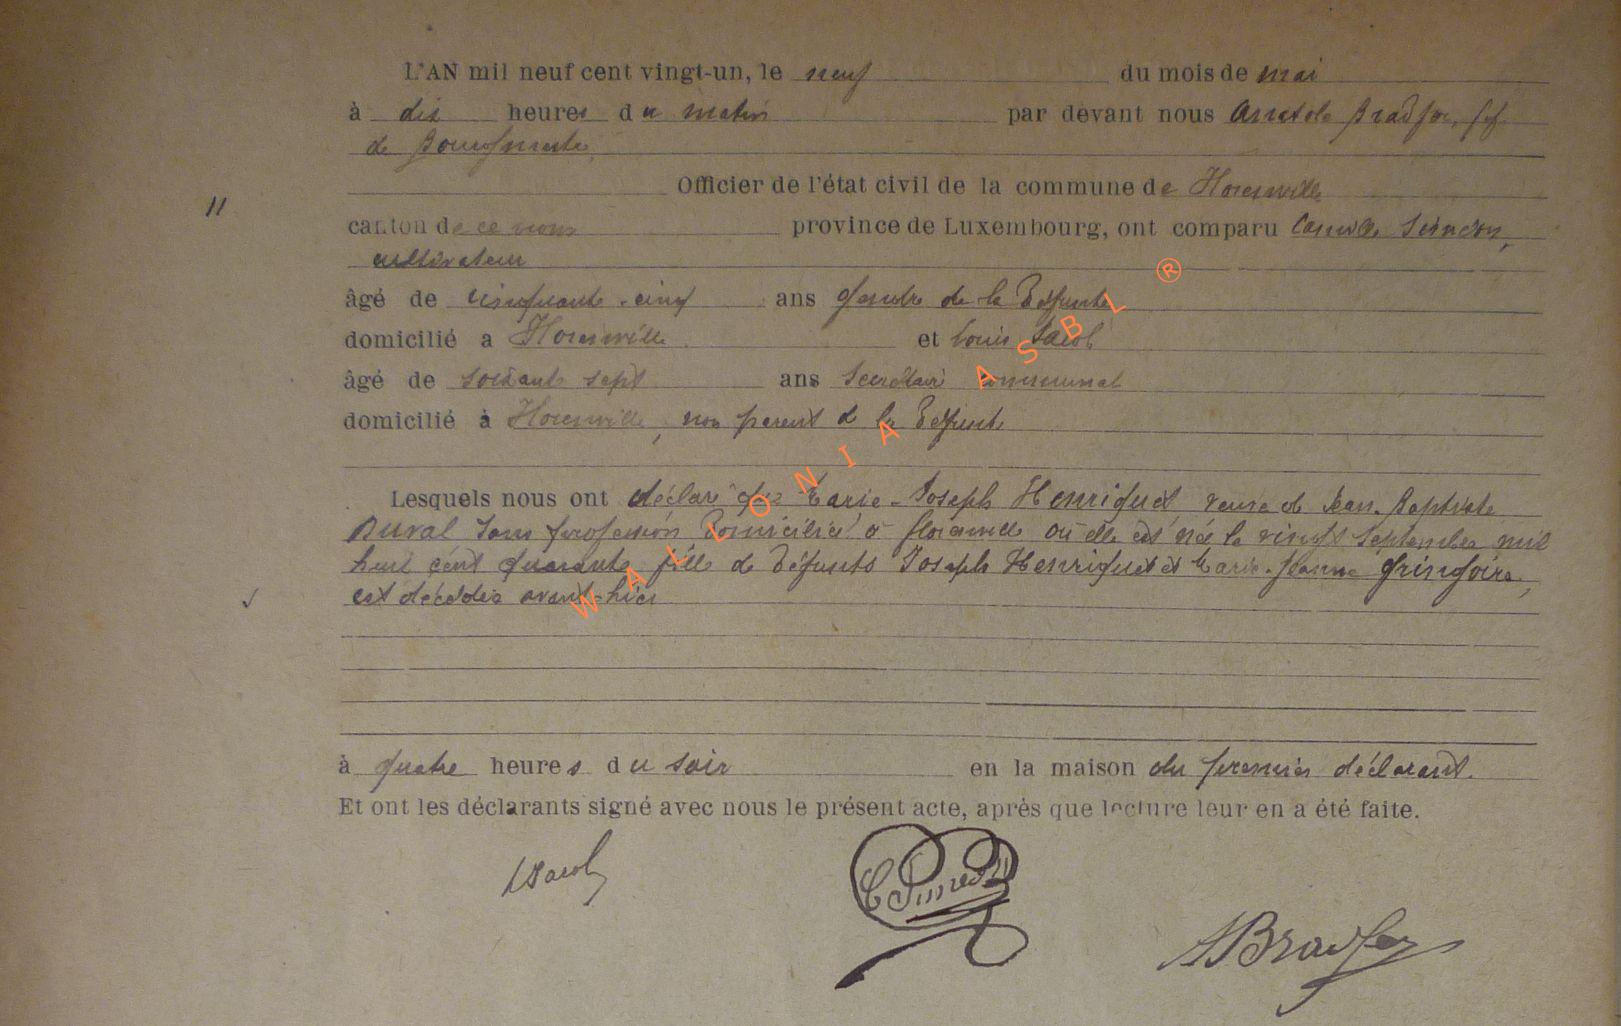 L'AN mil neuf cent vingt-un, le neuf du mois de mai
à dix heures du matin par devant nous Anatole Bradfer, ff.
de Bourgmestre,
Officier de l'état civil de la commune de Florenville
11
canton de ce nom province de Luxembourg, ont comparu Camille Simeon,
cultivateur
âgé de cinquante-cinq ans gendre de la Défunte
domicilié a Florenville et Louis Jacob
âgé de soixante sept ans Secrétaire communal
domicilié à Florenville, non parent de la Défunte
Lesquels nous ont déclaré que Marie-Joseph Henriquet, veuve de Jean-Baptiste
Duval sans profession Domiciliée à florenville où elle est née le vingt Septembre mil
huit cent quarante fille de Défunts Joseph Henriquet et Marie-Jeanne Gringoire,
est décédée avant-hier
à quatre heures du soir en la maison du premier déclarant.
Et ont les déclarants signé avec nous le présent acte, après que lecture leur en a été faite.
LJacob
C Simeon
ABradfer
WALLONIA ASBL ®